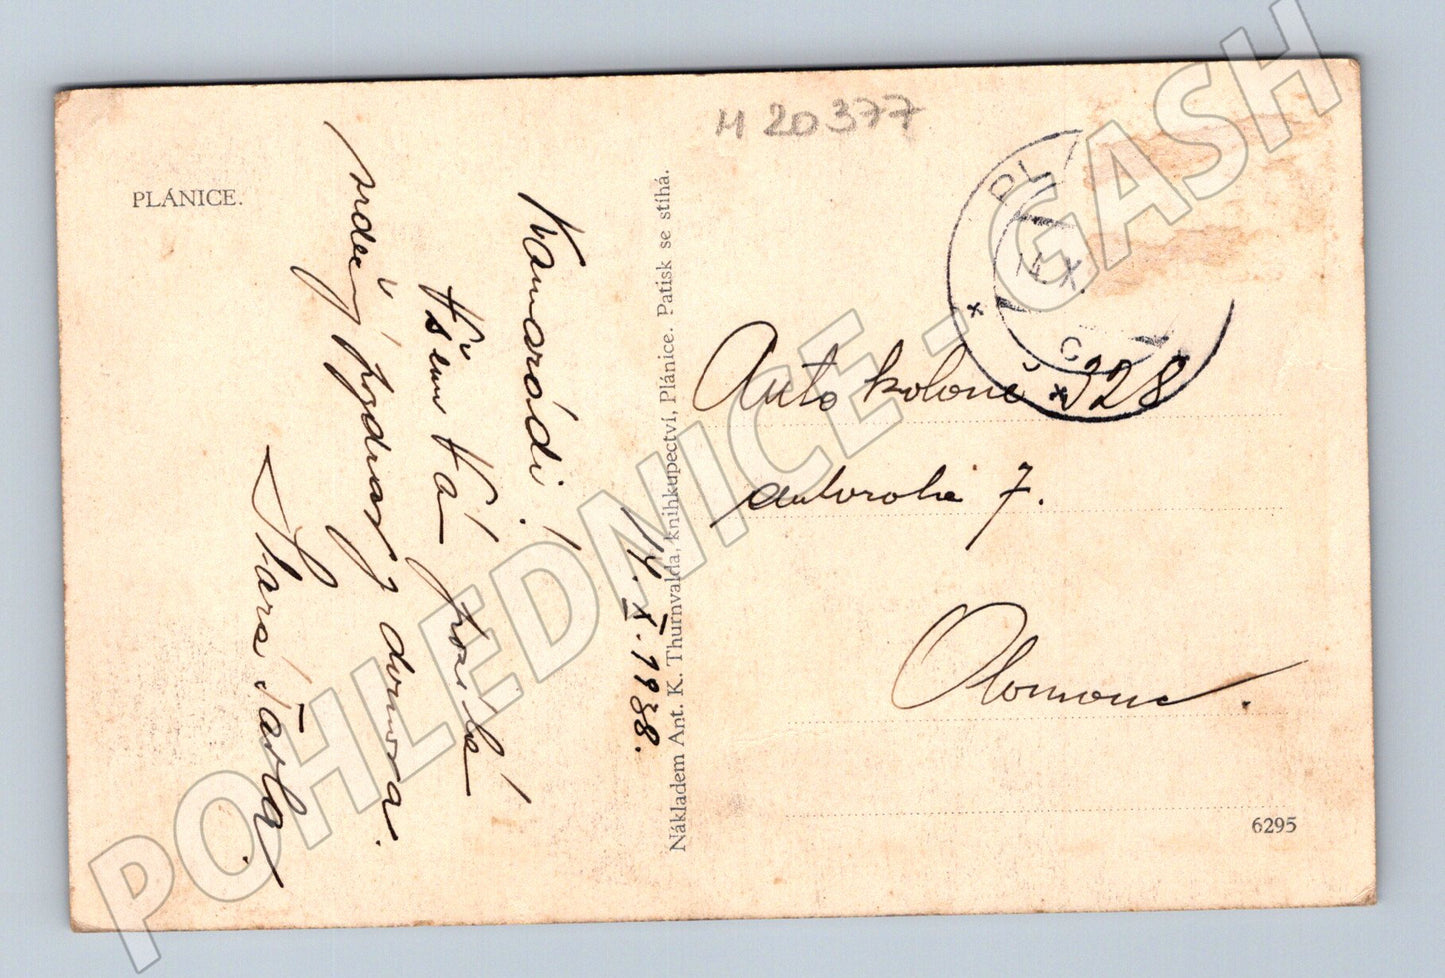 H 20377
PLÁNICE.
Kamarádi!
Všem Vá posílá
srdečný pozdrav z domova.
14. X. 1938.
Nákladem Ant. K. Thurnvalda, knihkupectví, Plánice. Patisk se stíhá.
PL
14 X
Auto kolona 328
autorota 7.
Olomouc.
6295
POHLEDNICE - GASH